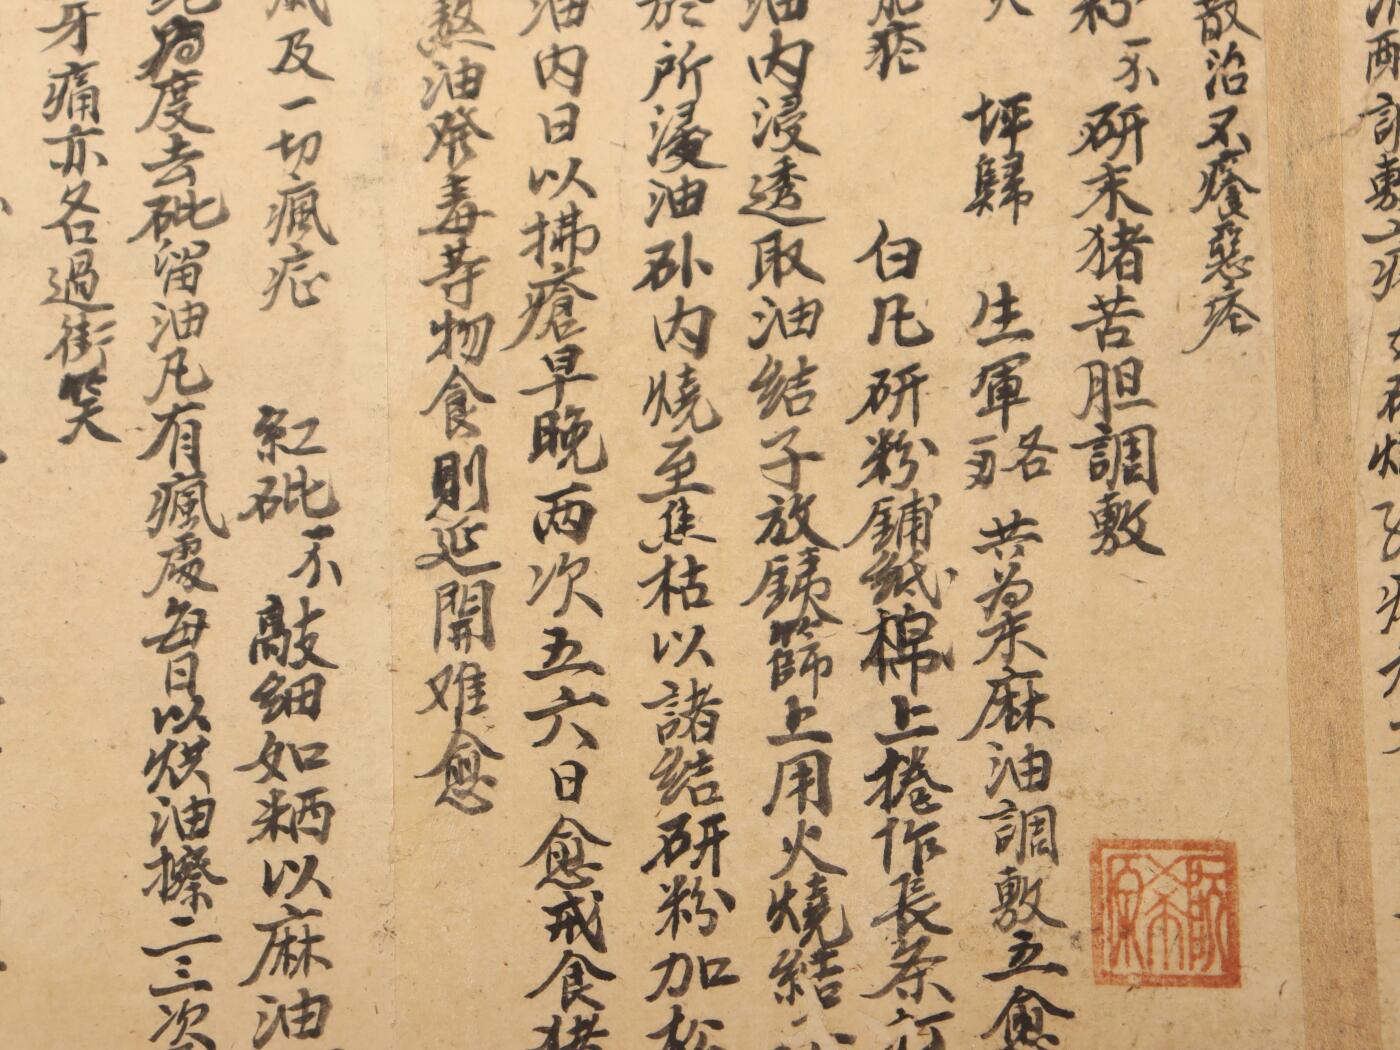 酥調敷
散治不癢惡瘡
粉 不 研末猪苦胆調敷
坪歸 生軍 各 共為末麻油調敷立愈
白凡研粉鋪絨棉上捲作長条
油内浸透取油結子放鉄篩上用火燒結
於所浸油砵内燒至焦枯以諸結研粉加松
油内日以拂瘡早晚两次五六日愈戒食猪
熬油發毒等物食則延開难愈
風及一切瘋症
紅砒 不 敲細如粞以麻油
為度去砒留油凡有瘋處每日以烘油擦二三次
牙痛亦各過街笑